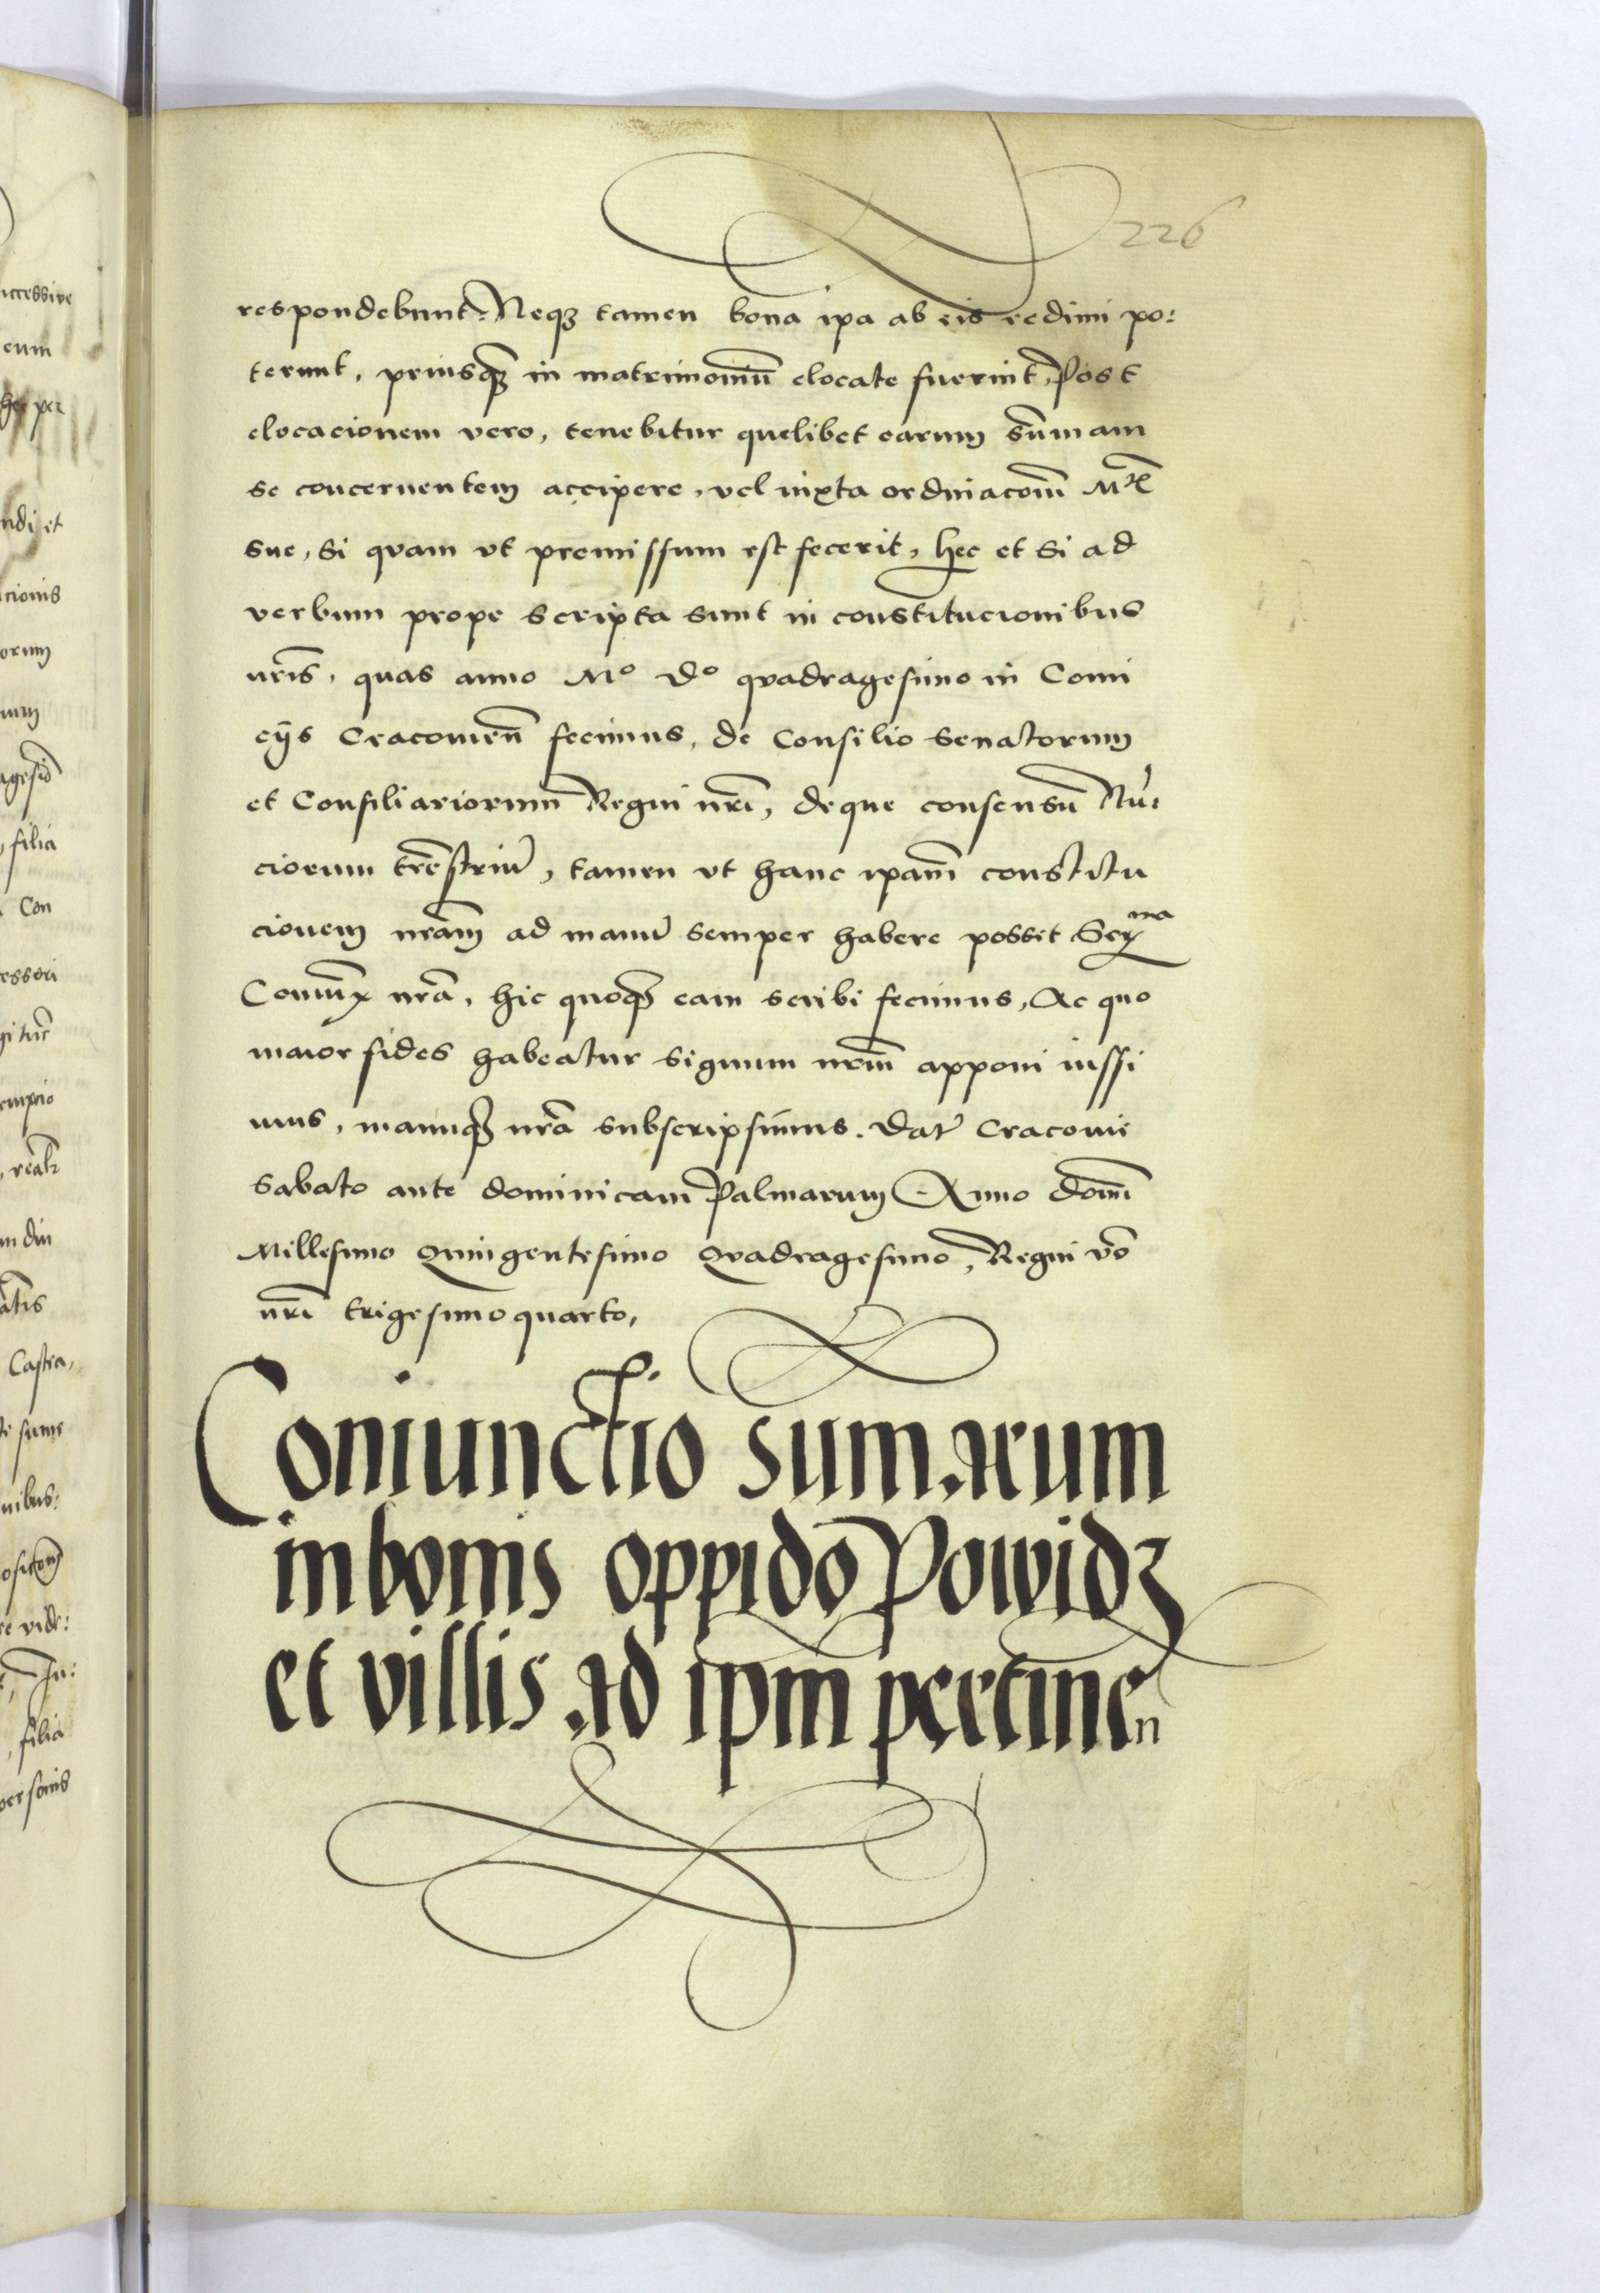 226
respondebunt. Neqꝫ tamen bona ipa ab eis redimi po:
terunt, priusqꝫ in matrimoniũ elocate fuerint, Post
elocacionem vero, tenebitur quelibet earum sum̃am
se concernentem accipere, vel iuxta ordinacom̃
sue, si quam vt premissum est fecerit, hec et si ad
verbum prope scripta sunt in constitucionibus
nrĩs, quas anno Mº dº quadragesimo in Comi
cÿs Cracouieñ fecimus, de Consilio senatorum
et Consiliariorum Regni nrĩ, deque consensu Nũ:
ciorum trẽstriũ, tamen vt hanc ipam̃ constitu
cionem nrãm ad manũ semper habere possit Serᵐᵃ
Coniũx nrã, hic quoqꝫ eam scribi fecimus, Ac quo
maior fides habeatur signum nrm̃ apponi iussi
mus, manuqꝫ nrã subscripsimus. Dat̃ Cracouie
sabato ante dominicam Palmarum Anno domĩ
Millesimo Quingentesimo Quadragesimo, Regni vo͂
nrĩ trigesimo quarto,
Coniunctio sum̄arum
in bonis oppido Powidz
et villis ad ipm pertineñ
iccessive
eum
per
ndi et
cionis
orum
filia
Con
essori
Castra,
nibus:
filia